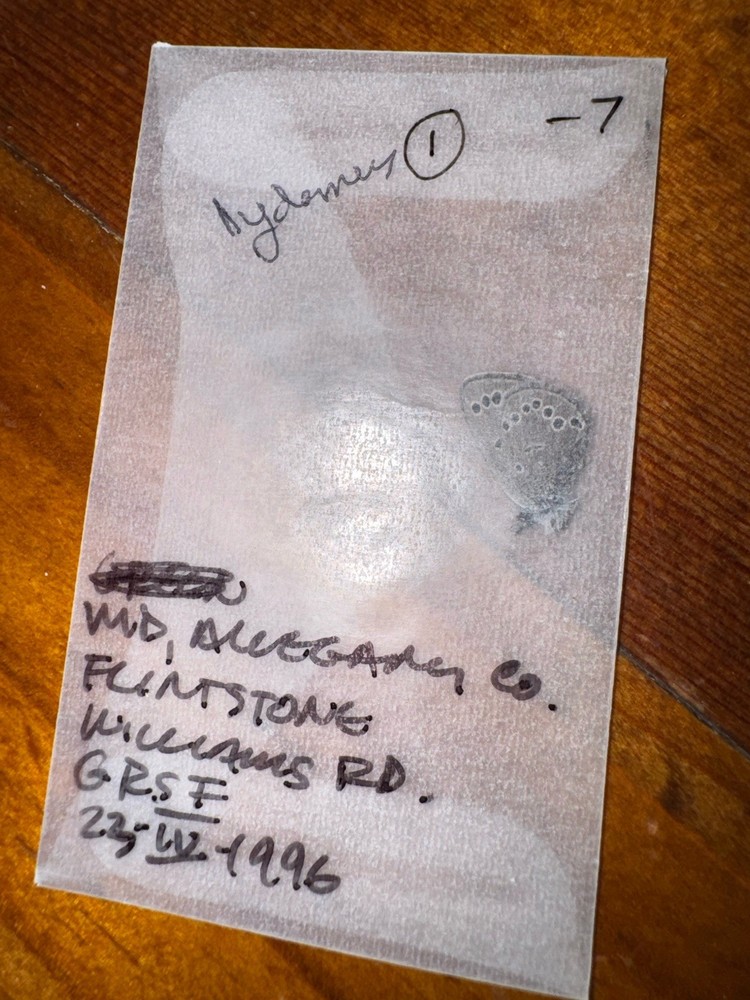 -7
lygdamus ①
MD, ALLEGANY CO.
FLINTSTONE
WILLIAMS RD.
GRSF
23-IV-1996